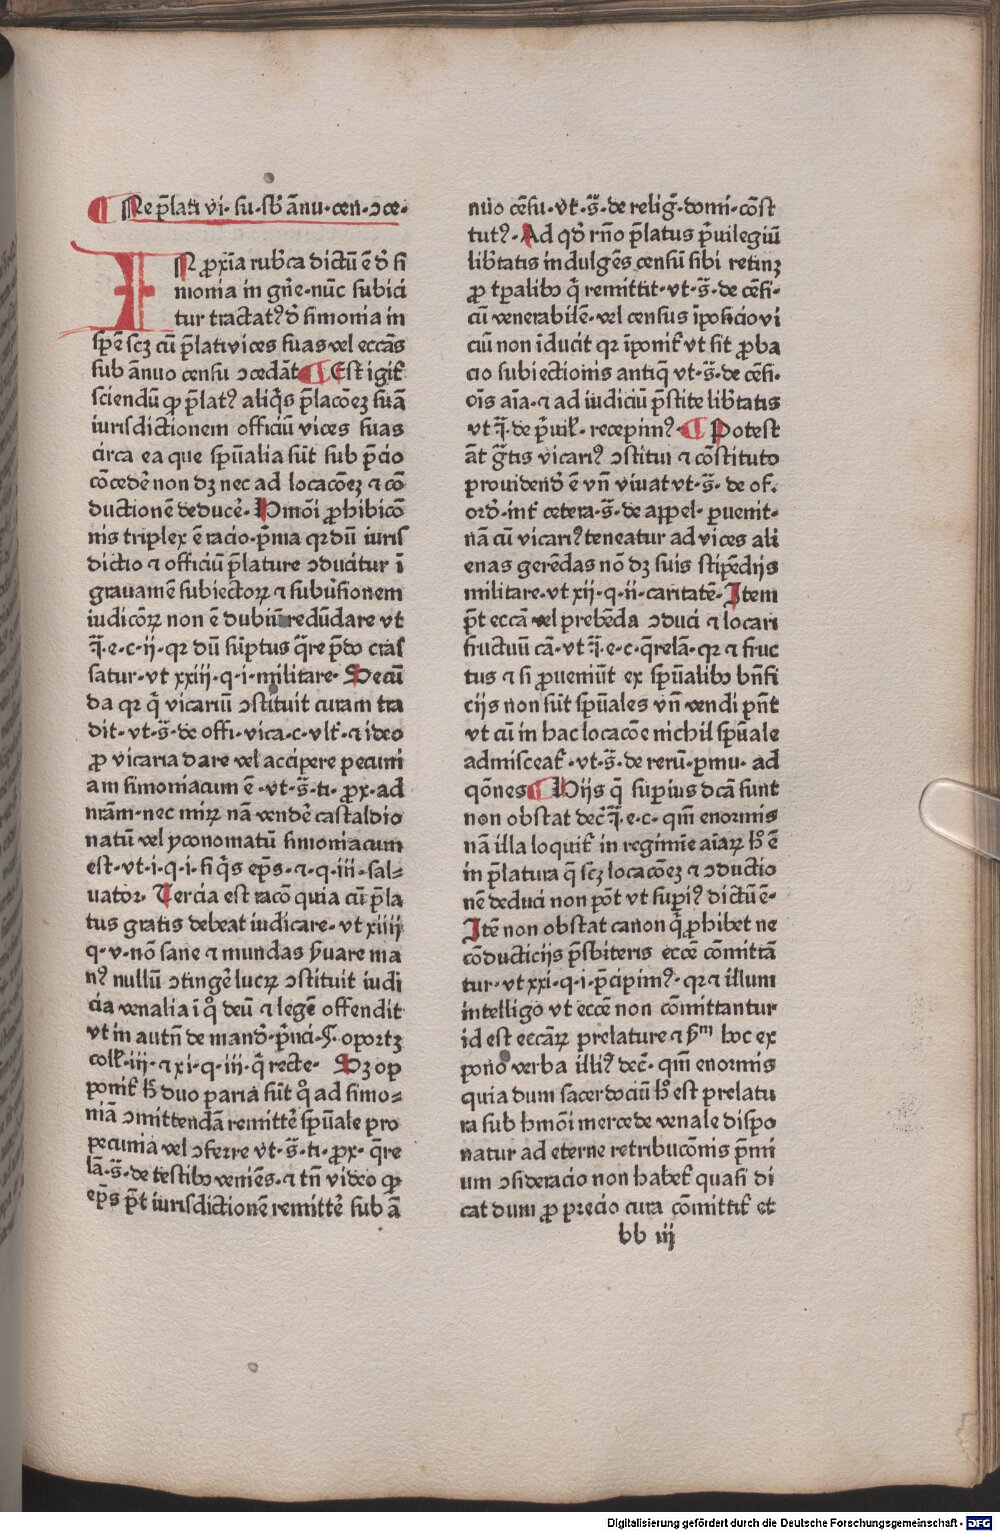 Ne p̄lati vi· su· sb̄ ānu· cen· ɔce·
IN ꝓxīa rubͥca dictū ē ď si
monia in gn̄e· nūc subici
tur tractatꝰ ď simonia in
spē scꝫ cū p̄lati vices suas vel eccās
sub ānuo censu ɔcedāt ¶ Est igit͛
sciendū ꝙ p̄latꝰ aliq̄s p̄lacōeꝫ suā
iurisdictionem officiū vices suas
circa ea que sp̄ualia sūt sub p̄cio
cōcedē non dꝫ nec ad locacōeꝫ ⁊ cō
ductionē deducē· Hmōi ꝓhibicō
nis triplex ē racio· p̄ma qꝛ dū iuris
dictio ⁊ officiū p̄lature ɔducitur ī
grauamē subiectoꝝ ⁊ subuͥsionem
iudicōꝝ non ē dubiū redūdare vt
q̄· e· c· ij· qꝛ dū sūptus q̄re p̄do cras
satur· vt xxiii· q· i· militare· Secū
da qꝛ q̄ vicariū ɔstituit curam tra
dit· vt· s̄· de offi· vica· c· vlt͛· ⁊ ideo
ꝓ vicaria dare vel accipere pecuni
am simoniacum ē· vt· s̄· ti· ꝓx· ad
nr̄am· nec miꝝ nā vendē castaldio
natū vel yconomatū simoniacum
est· vt· i· q· i· si q̄s ep̄s· ⁊· q· iii· sal⸗
uator· Tercia est racō quia cū p̄la
tus gratis debeat iudicare· vt xiiij
q· v· nō sane ⁊ mundas ẜuare ma
nꝰ nullū ɔtingē lucꝝ ɔstituit iudi
cia venalia i q̊ deū ⁊ legē offendit
vt in autn̄ de mand̓· p̄nci· §· oportꝫ
coll͛· iij· ⁊ xi· q· iii· q̄ recte· Sꝫ op
ponit͛ hͦ duo paria sūt q̊ ad simo⸗
niā ɔmittendā remittē sp̄uale pro
pecunia vel ɔferre vt· s̄· ti· ꝓx· q̄re
lā· s̄· de testibꝰ veniēs· ⁊ tn̄ video ꝙ
ep̄s p̄t iurisdictionē remittē sub ā
nuo cēsu· vt͛· s̄· de relig̓· domi· cōst
tutꝰ· Ad qď rn̄o p̄latus p̄uilegiū
libͥtatis indulgēs censū sibi retinꝫ
ꝓ tꝑalibꝰ q̄ remittit· vt· s̄· de cēsi·
cū venerabilē· vel census īposicio vi
ciū non īducit qꝛ īponit͛ vt sit ꝓba
cio subiectionis antiq̄ vt· s̄· de cēsi·
oīs aīa· ⁊ ad iudiciū p̄stite libͥtatis
vt q̄· de p̄uil͛· recepimꝰ· ¶ Potest
āt gr̄tis vicariꝰ ɔstitui ⁊ cōstituto
prouidend̓ ē vn̄ viuat vt· s̄· de of·
ord̓· int͛ cetera· s̄· de appel· ꝑuenit·
nā cū vicariꝰ teneatur ad vices ali
enas gerēdas nō dꝫ suis stipēdijs
militare· vt xij· q· ii· caritatē· Item
p̄t eccā vel prebēda ɔduci ⁊ locari
fructuū cā· vt q̄· e· c· q̄relā· qꝛ ⁊ fruc
tus ⁊ si ꝓueniūt ex sp̄ualibꝰ bn̄fi
cijs non sūt sp̄uales vn̄ vendi pn̄t
vt cū in hac locacōe nichil sp̄uale
admisceat͛· vt· s̄· de rerū· ꝑmu· ad
qōnes ¶ Hijs q̄ suꝑius dc̄a sunt
non obstat dec͛ q̄· e· c· qm̄ enormis
nā illa loquit͛ in regimīe aīaꝝ hͦ ē
in p̄latura q̄ scꝫ locacōeꝫ ⁊ ɔductio
nē deduci non pōt vt suꝑiꝰ dictū ē·
Itē non obstat canon q̄ ꝓhibet ne
cōducticijs p̄sbiteris eccē cōmittā
tur· vt xxi· q· i· p̄cipimꝰ· qꝛ ⁊ illum
intelligo vt eccē non cōmittantur
id est eccāꝝ prelature ⁊ ẜm hoc ex
pono verba illiꝰ dec͛· qm̄ enormis
quia dum sacerdociū hͦ est prelatu
ra sub hmōi mercede venale dispo
natur ad eterne retribucōnis p̄mi
um ɔsideracio non habet͛ quasi di
cat dum ꝓ precio cura cōmittit͛ et
bb iij
Digitalisierung gefördert durch die Deutsche Forschungsgemeinschaft - DFG